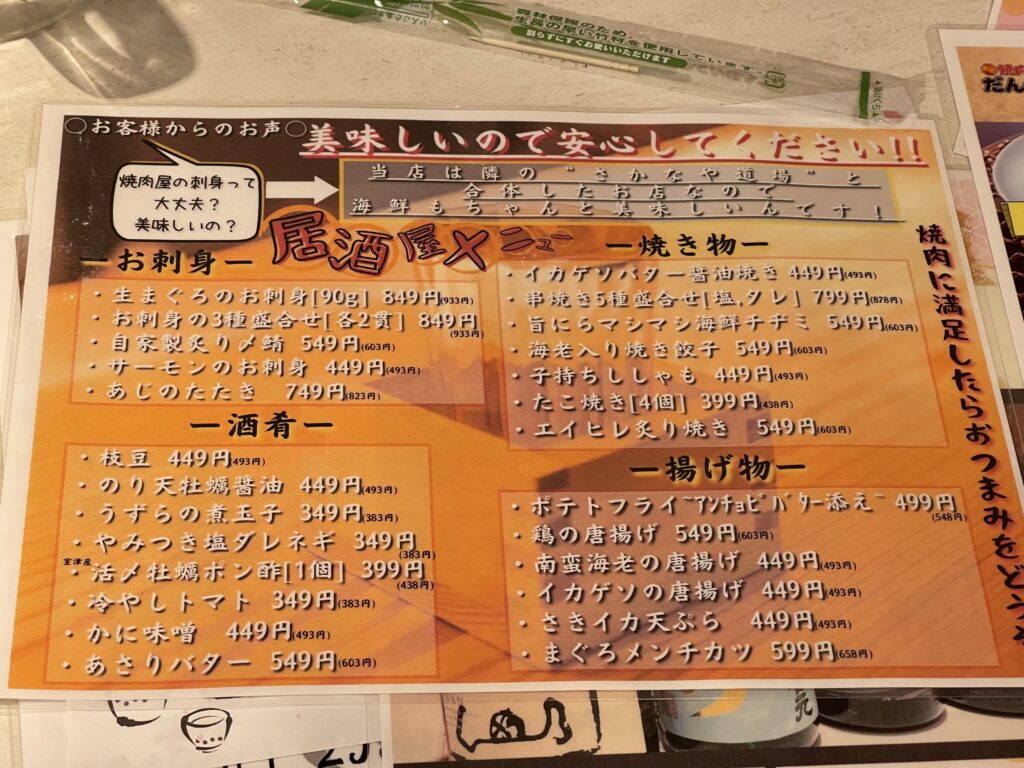 森林保護のため、
生長の早い竹材を使用しています。
割らずにすぐお使いいただけます
○お客様からのお声○
美味しいので安心してください!!
焼肉屋の刺身って
大丈夫?
美味しいの?
当店は隣の"さかなや道場"と
合体したお店なので
海鮮もちゃんと美味しいんです!
居酒屋メニュー
ーお刺身ー
・生まぐろのお刺身[90g] 849円(933円)
・お刺身の3種盛合せ[各2貫] 849円(933円)
・自家製炙り〆鯖 549円(603円)
・サーモンのお刺身 449円(493円)
・あじのたたき 749円(823円)
ー酒肴ー
・枝豆 449円(493円)
・のり天牡蠣醤油 449円(493円)
・うずらの煮玉子 349円(383円)
・やみつき塩ダレネギ 349円(383円)
室津産
・活〆牡蠣ポン酢[1個] 399円(438円)
・冷やしトマト 349円(383円)
・かに味噌 449円(493円)
・あさりバター 549円(603円)
ー焼き物ー
・イカゲソバター醤油焼き 449円(493円)
・串焼き5種盛合せ[塩,タレ] 799円(878円)
・旨にらマシマシ海鮮チヂミ 549円(603円)
・海老入り焼き餃子 549円(603円)
・子持ちししゃも 449円(493円)
・たこ焼き[4個] 399円(438円)
・エイヒレ炙り焼き 549円(603円)
ー揚げ物ー
・ポテトフライ~ｱﾝﾁｮﾋﾞﾊﾞﾀｰ添え~ 499円(548円)
・鶏の唐揚げ 549円(603円)
・南蛮海老の唐揚げ 449円(493円)
・イカゲソの唐揚げ 449円(493円)
・さきイカ天ぷら 449円(493円)
・まぐろメンチカツ 599円(658円)
焼肉に満足したらおつまみをどうぞ
だん
元